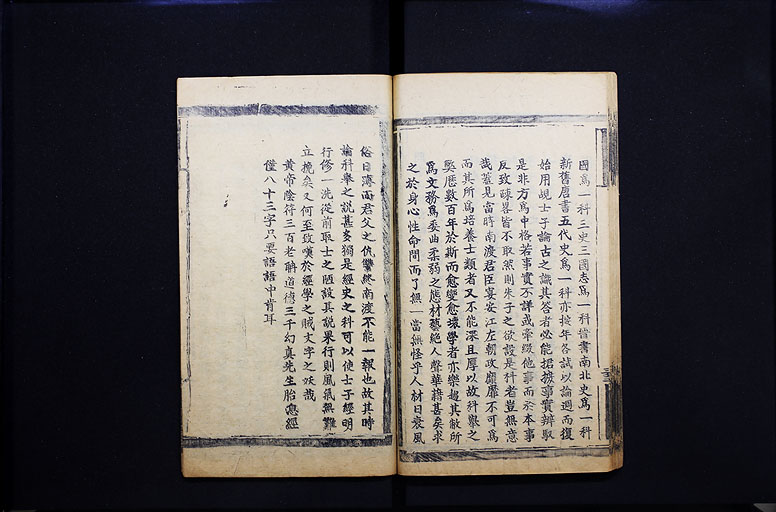 國爲一科三史三國志爲一科晉書南北史爲一科
新舊唐書五代史爲一科亦按年各試以論週而復
始用覘士子論古之識其答者必能據事實辨駁
是非方爲中格若事實不詳或牽綴他事而於本事
反致疎畧皆不取然則朱子之欲設是科者豈無意
哉蓋見當時南渡君臣宴安江左朝政廢靡不可爲
而其所爲培養士類者又不能深且厚以故科擧之
弊歷數百年於斯而愈變愈壞學者亦樂趨其敝所
爲文務爲委曲柔弱之態材藝絕人聲華藉甚矣求
之於身心性命間而了無一當無怪乎人材日衰風
俗日薄而君父之仇讐終南渡不能一報也故其時
論科擧之說甚多獨是經史之科可以使士子經明
行修一洗從前取士之陋設其說果行則風氣無難
立挽矣又何至致嘆於經學之賊文字之妖哉
黃帝陰符三百老聃道德三千幻真先生胎息經
僅八十三字只要語語中肯耳